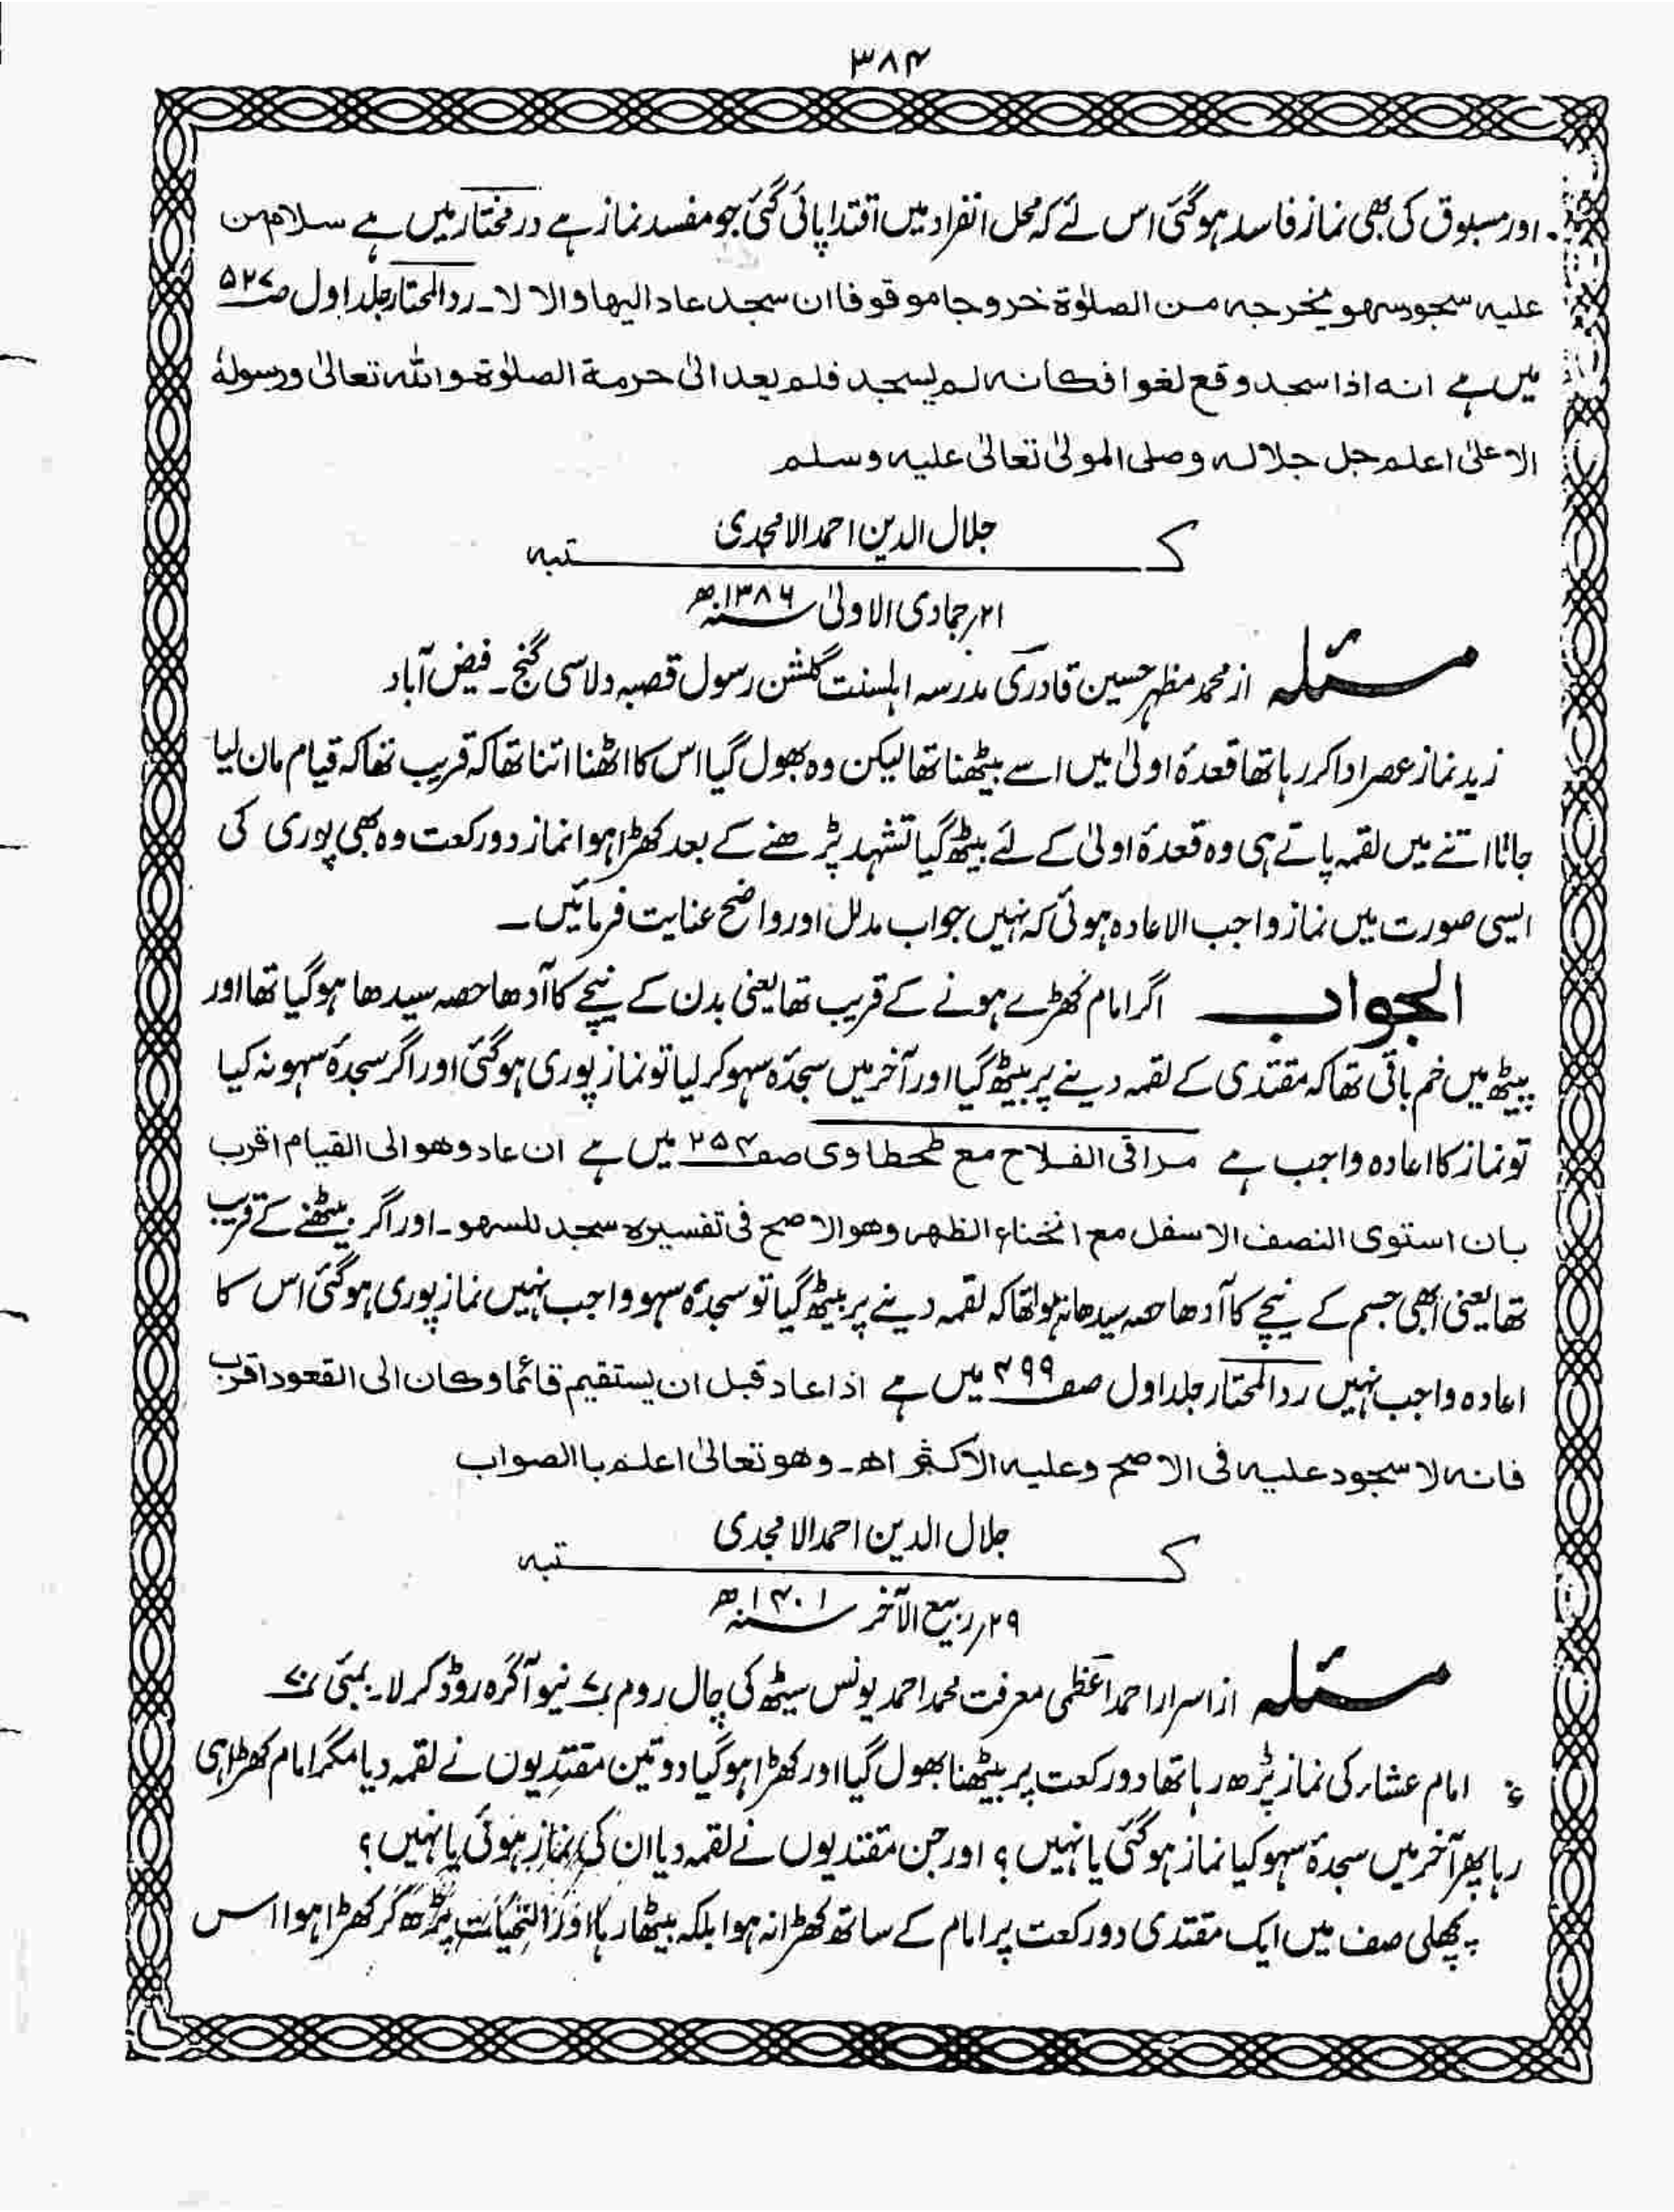 ۳۸۴
اور مسبوق کی بھی نماز فاسد ہوگئی اس لئے کہ محل انفراد میں اقتدا پائی گئی جو مفسد نماز ہے درمختار میں ہے سلام من
علیہ سجود سہو یخرجہ من الصلوٰۃ خروجا موقوفا ان سجد عاد الیھا والا لا۔ ردالمحتار جلد اول صـ ۵۲۷
میں ہے انہ اذا سجد وقع لغوا فکانہ لم یسجد فلم یعد الی حرمۃ الصلوٰۃ واللہ تعالیٰ ورسولہٗ
الاعلیٰ اعلم جل جلالہ وصلی المولیٰ تعالیٰ علیہ وسلم
جلال الدین احمد الامجدی
کـــــتبہ
۲۱؍ جمادی الاولیٰ سنہ ۱۳۸۶ھ
مسئلہ از محمد مظہر حسین قادری مدرسہ اہلسنت گلشن رسول قصبہ دلاسی گنج۔ فیض آباد
زید نماز عصر ادا کر رہا تھا قعدۂ اولیٰ میں اسے بیٹھنا تھا لیکن وہ بھول گیا اس کا اٹھنا اتنا تھا کہ قریب تھا کہ قیام مان لیا
جاتا اتنے میں لقمہ پاتے ہی وہ قعدۂ اولیٰ کے لئے بیٹھ گیا تشہد پڑھنے کے بعد کھڑا ہوا نماز دو رکعت وہ بھی پوری کی
ایسی صورت میں نماز واجب الاعادہ ہوئی کہ نہیں جواب مدلل اور واضح عنایت فرمائیں۔
الجواب اگر امام کھڑے ہونے کے قریب تھا یعنی بدن کے نیچے کا آدھا حصہ سیدھا ہوگیا تھا اور
پیٹھ میں خم باقی تھا کہ مقتدی کے لقمہ دینے پر بیٹھ گیا اور آخر میں سجدۂ سہو کر لیا تو نماز پوری ہوگئی اور اگر سجدۂ سہو نہ کیا
تو نماز کا اعادہ واجب ہے مراقی الفلاح مع طحطاوی صفـ ۲۵۴ میں ہے ان عاد وھو الی القیام اقرب
بان استوی النصف الاسفل مع انحناء الظھر وھو الاصح فی تفسیرہ سجد للسھو۔ اور اگر بیٹھنے کے قریب
تھا یعنی ابھی جسم کے نیچے کا آدھا حصہ سیدھا نہ ہوا تھا کہ لقمہ دینے پر بیٹھ گیا تو سجدۂ سہو واجب نہیں نماز پوری ہوگئی اس کا
اعادہ واجب نہیں ردالمحتار جلد اول صفـ ۴۹۹ میں ہے اذا عاد قبل ان یستقیم قائما وکان الی القعود اقرب
فانہ لا سجود علیہ فی الاصح وعلیہ الاکثر اھ۔ وھو تعالیٰ اعلم باالصواب
جلال الدین احمد الامجدی
کـــــتبہ
۲۹؍ ربیع الآخر سنہ ۱۴۰۱ھ
مسئلہ از اسرار احمد اعظمی معرفت محمد احمد یونس سیٹھ کی چال روم ۷ نیو آگرہ روڈ کرلا۔ بمبئی ۷۰
امام عشاء کی نماز پڑھ رہا تھا دو رکعت پر بیٹھنا بھول گیا اور کھڑا ہوگیا دو تین مقتدیوں نے لقمہ دیا مگر امام کھڑا ہی
رہا پھر آخر میں سجدۂ سہو کیا نماز ہوگئی یا نہیں ؟ اور جن مقتدیوں نے لقمہ دیا ان کی نماز ہوئی یا نہیں ؟
پچھلی صف میں ایک مقتدی دو رکعت پر امام کے ساتھ کھڑا نہ ہوا بلکہ بیٹھا رہا اور التحیات پڑھ کر کھڑا ہوا اس